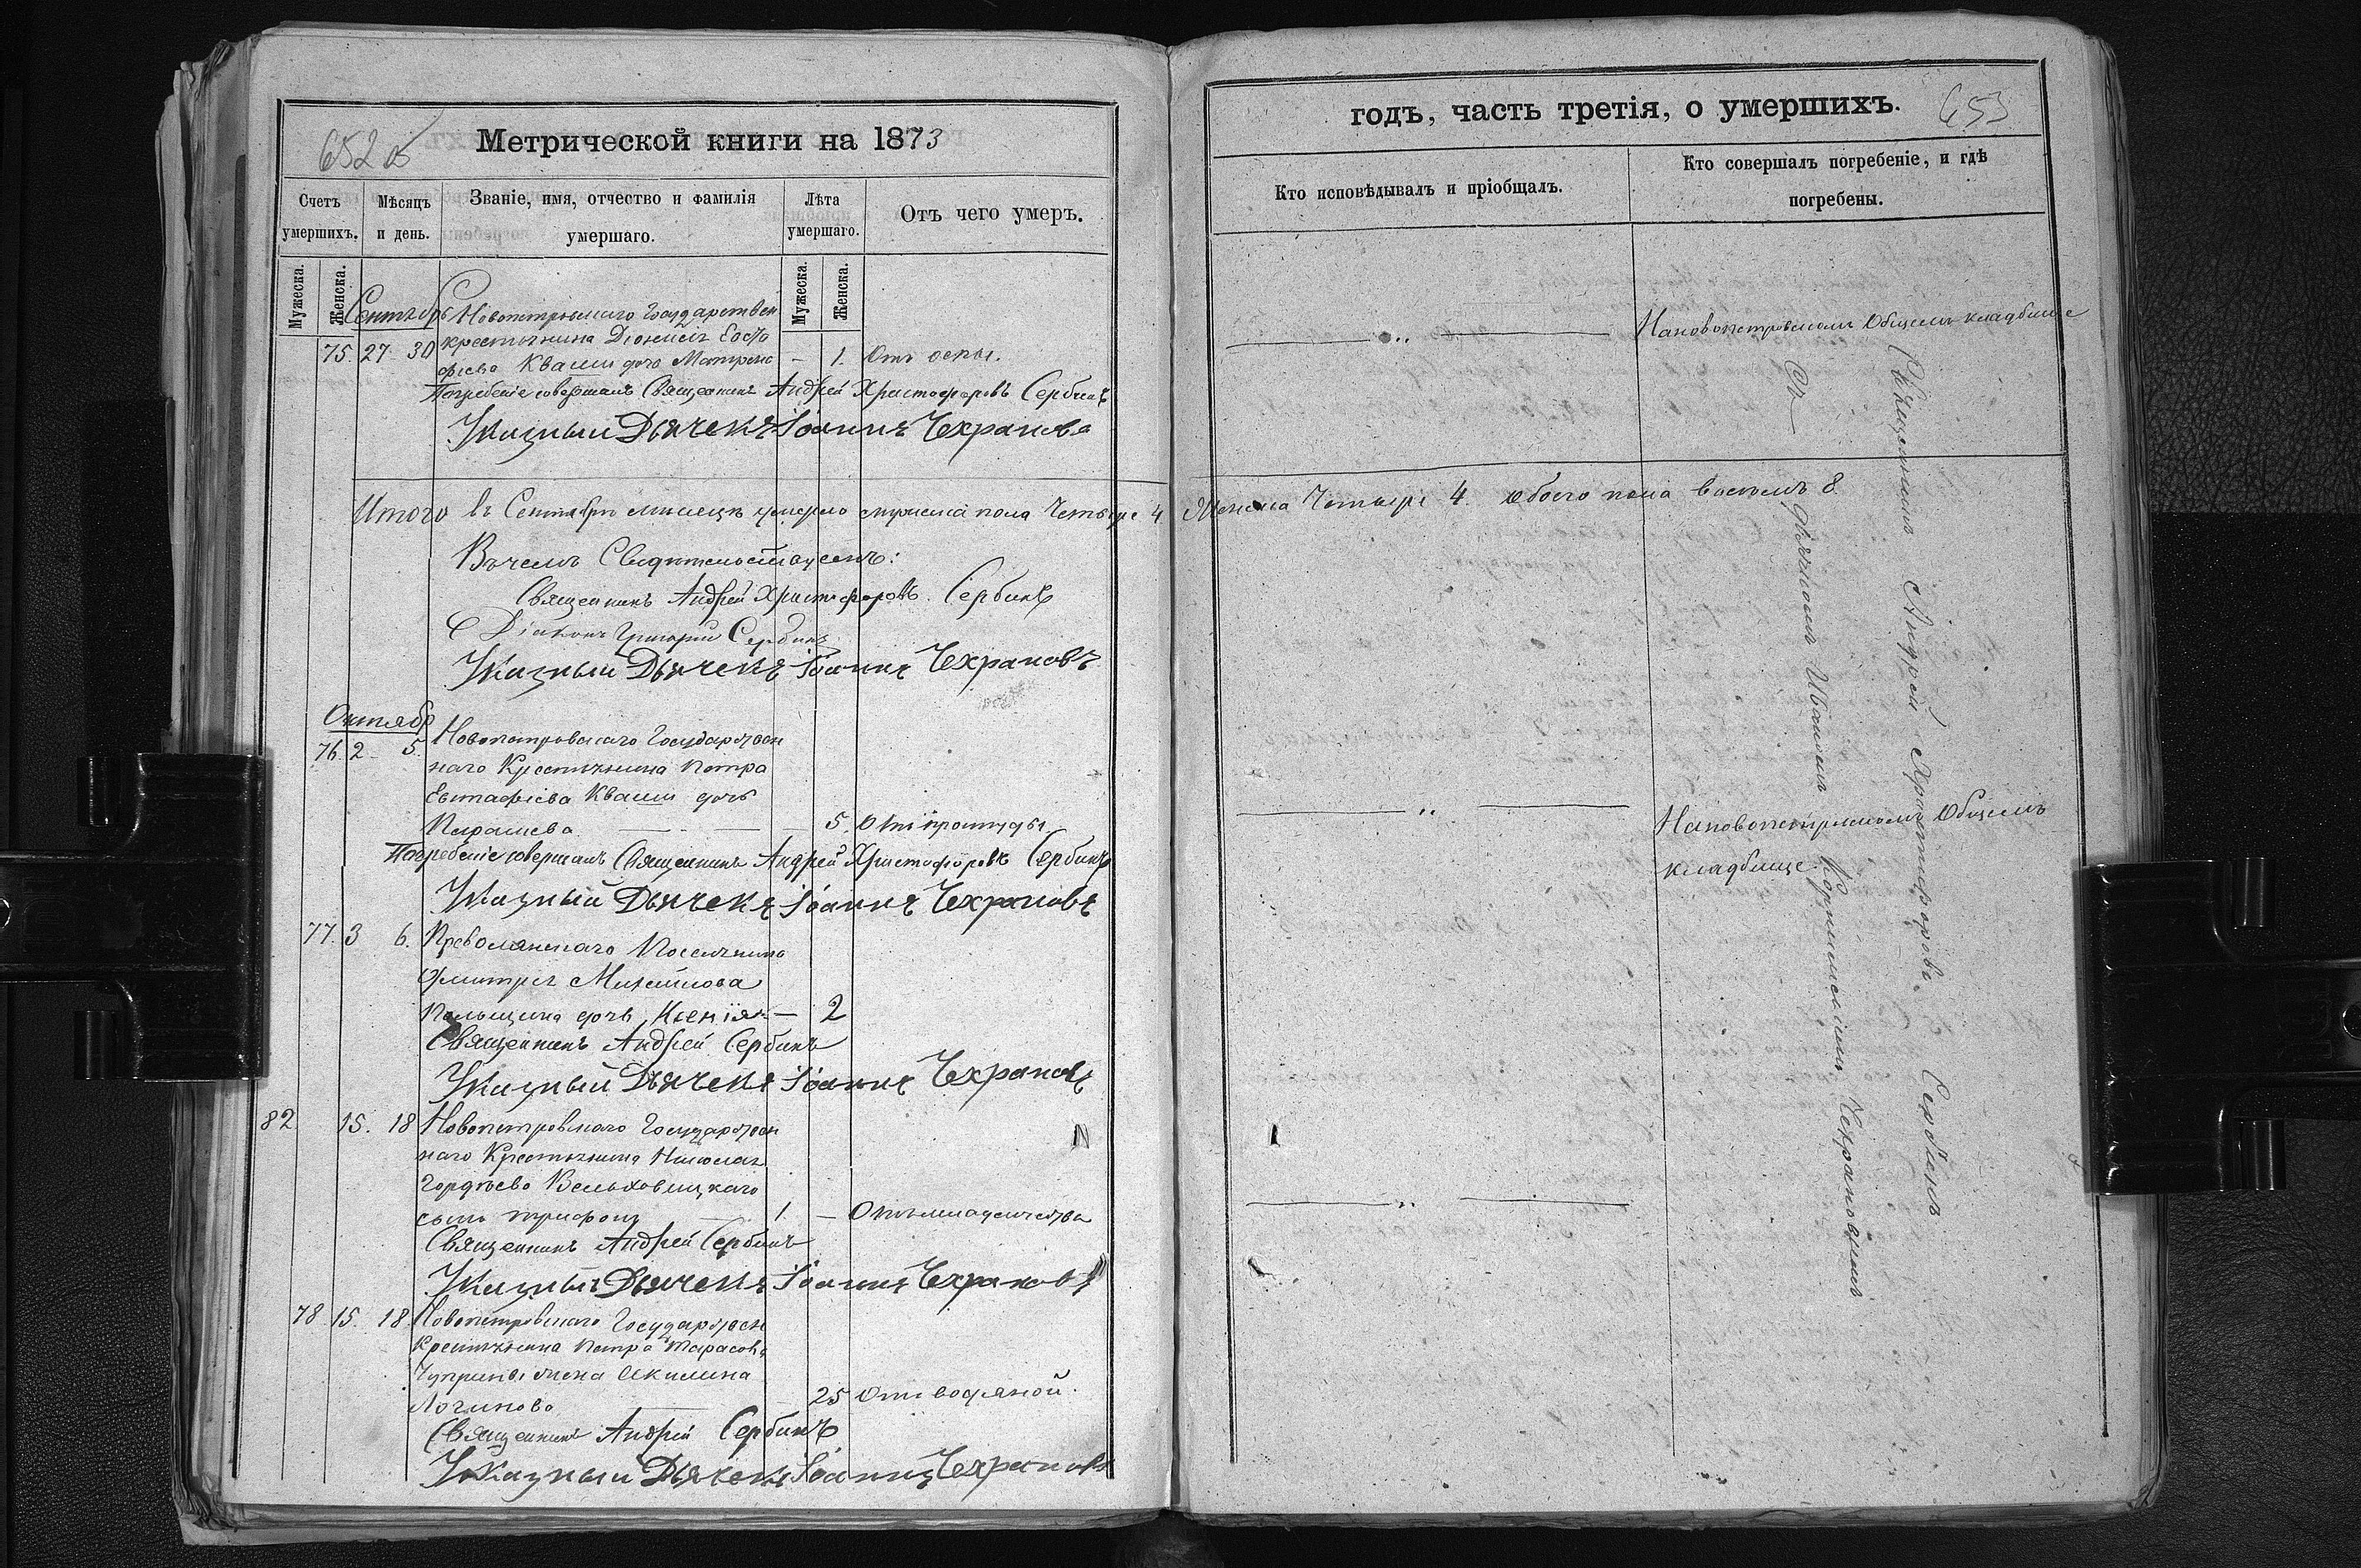 652 об
Метрической книги на 1873
Счетъ умершихъ.
Мѣсяцъ и день.
Званіе, имя, отчество и фамилія умершаго.
Лѣта умершаго.
Отъ чего умеръ.
Мужеска.
Женска.
Мужеска.
Женска.
Сентябрь Новопетровскаго Государствен
75. 27 30 крестьянина Діонисія Евста
фіева Кваши дочь Матрена — 1. Отъ оспы.
Погребеніе совершалъ Священникъ Андрей Христофоровъ Сербинъ
Указный Дьячекъ Іоаннъ Чехрановъ
Итого въ Сентябрѣ мѣсяцѣ умерло мужеска пола Четыре 4
Въ чемъ Свидѣтельствуемъ:
Священникъ Андрей Христофоровъ Сербинъ
Діаконъ Григорій Сербинъ
Указный Дьячекъ Іоаннъ Чехрановъ
Октябр
76. 2 5. Новопетровскаго Государствен
наго Крестьянина Петра
Евтафіева Кваши дочь
5. Отъ простуды.
Погребеніе совершалъ Священникъ Андрей Христофоровъ Сербинъ
Указный Дьячекъ Іоаннъ Чехрановъ
77. 3 6. Поселянина
Дмитрія Михайлова
дочь Ксенія — 2
Священникъ Андрей Сербинъ
Указный Дьячекъ Іоаннъ Чехрановъ
82 15. 18 Новопетровскаго Государствен
наго Крестьянина Николая
Гордѣева
сынъ Трифонъ 1. — Отъ младенчества
Священникъ Андрей Сербинъ
Указный Дьячекъ Іоаннъ Чехрановъ
78 15. 18 Новопетровскаго Государствен
Крестьянина Петра Тарасова
Чуприны жена Акилина
Логинова 25 Отъ водяной.
Священникъ Андрей Сербинъ
Указный Дьячекъ Іоаннъ Чехрановъ
годъ, часть третія, о умершихъ.
653
Кто исповѣдывалъ и пріобщалъ.
Кто совершалъ погребеніе, и гдѣ
погребены.
— „ — На новопетровскомъ Общемъ кладбище
Женска Четыре 4. обоего пола восемь 8.
— „ — На новопетровскомъ Общемъ
кладбище.
— „ —
Священникъ Андрей Христофоровъ Сербинъ
Съ дьячкомъ Иваномъ Корнилиевымъ Чехрановымъ